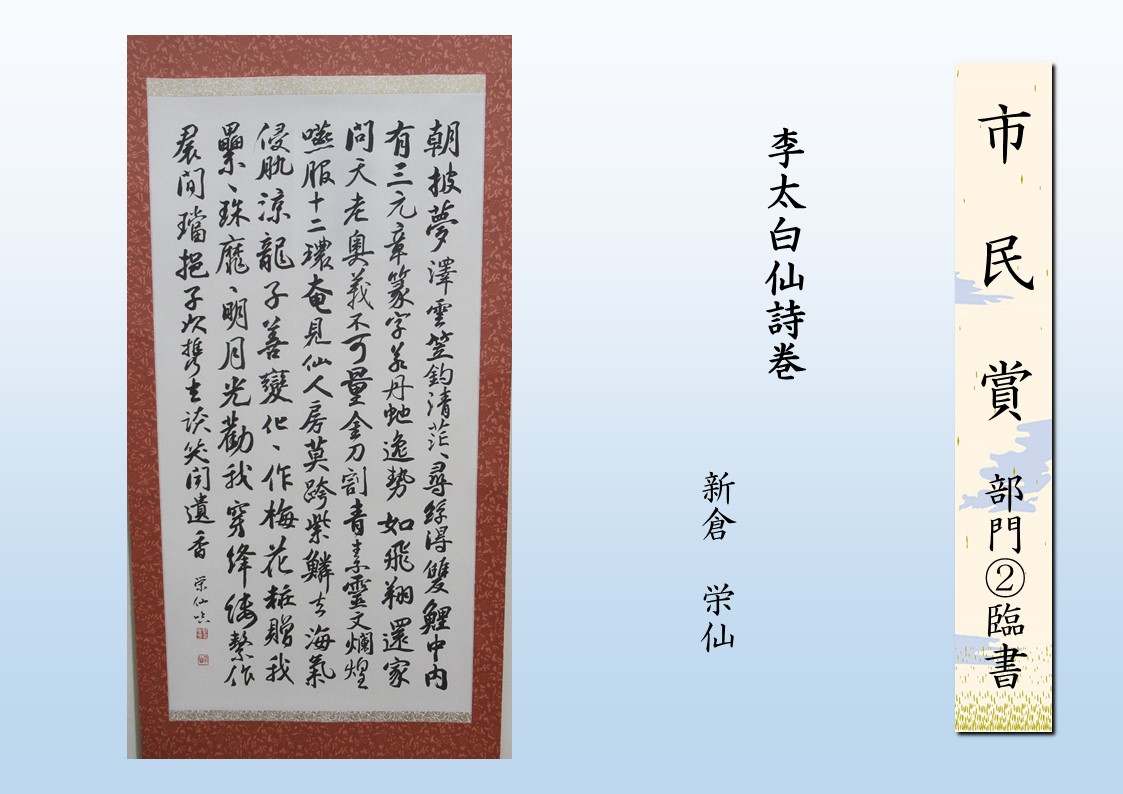 市民賞 部門②臨書
李太白仙詩巻
新倉 栄仙
朝披夢澤雲笠釣清茫、尋絲得雙鯉中内
有三元章篆字若丹虵逸勢如飛翔還家
問天老奥義不可量金刀割青素靈文爛煌
嚥服十二環奄見仙人房莫跨紫鱗去海氣
侵肌涼龍子善變化、作梅花粧贈我
纍、珠靡、明月光勸我穿絳縷繫作
裠間璫挹子以携去談笑聞遺香 栄仙臨